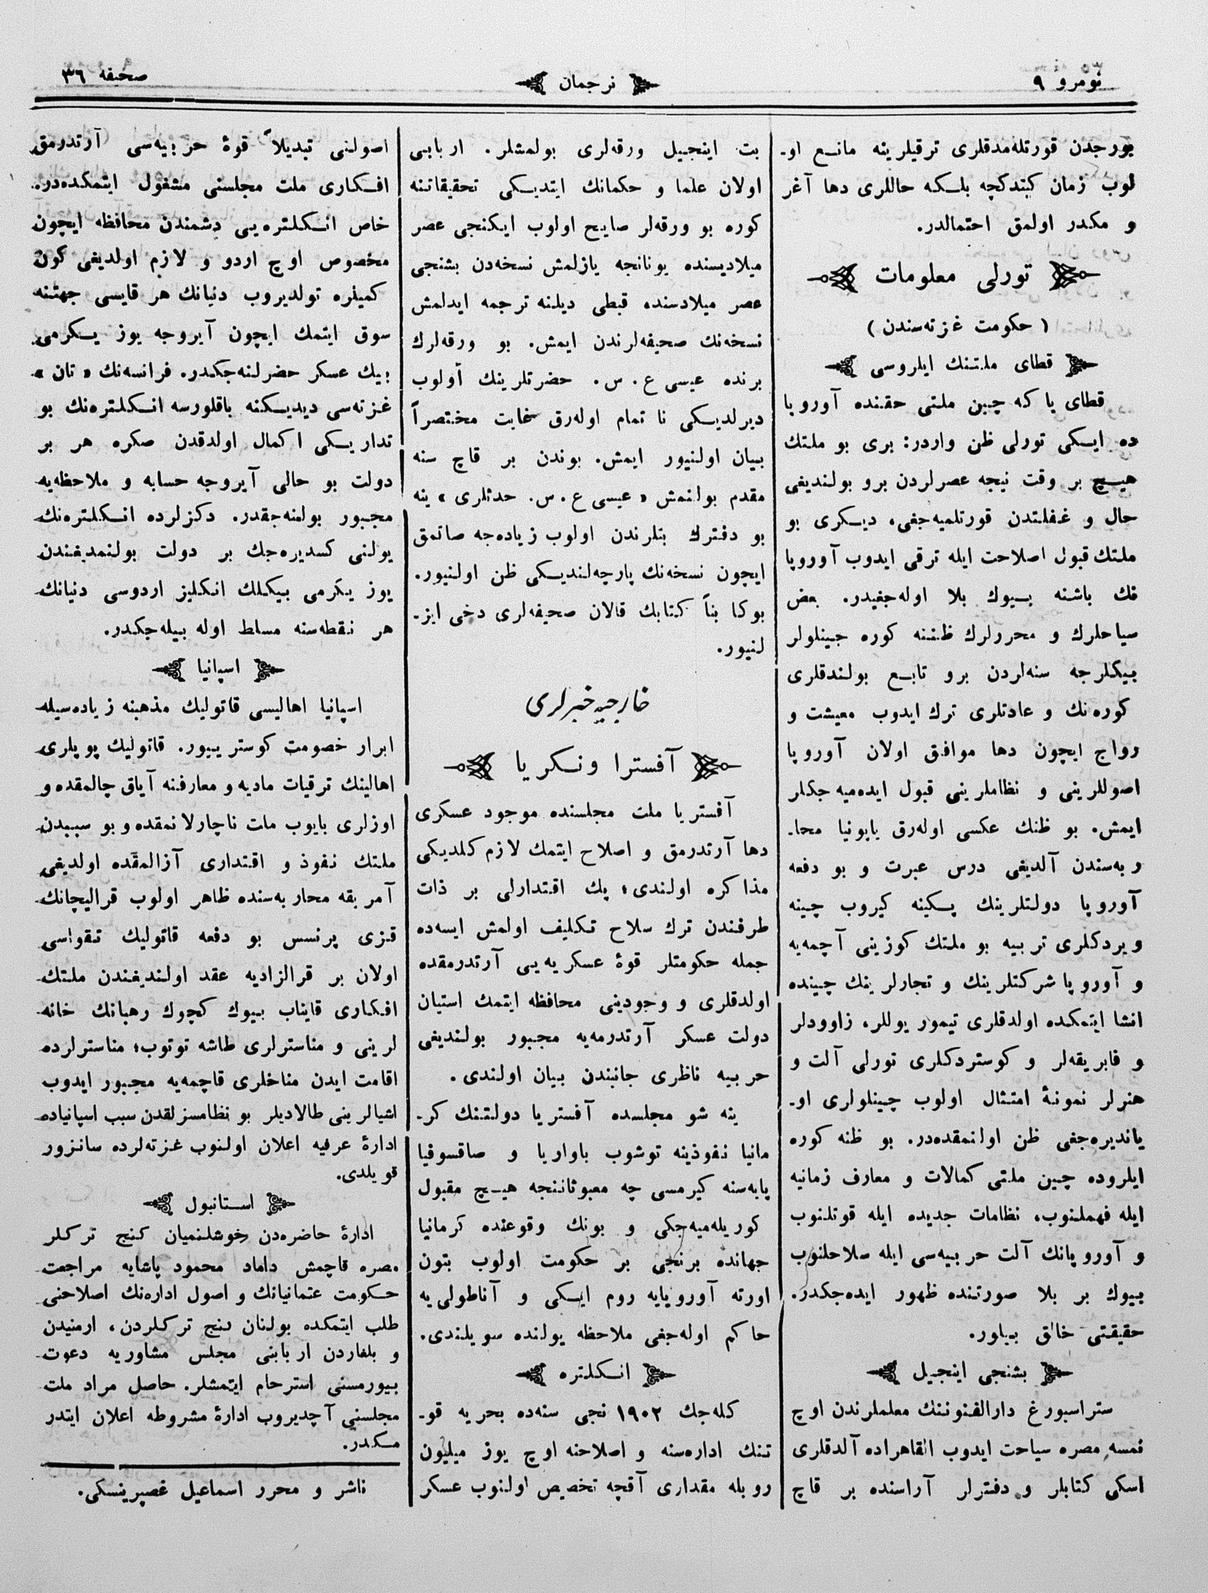 نومرو ٩
ترجمان
صحيفه ٣٦
بورجدن قورتله‌مدقلرى ترقيلرينه مانع او-
لوب زمان كيتدكچه بلكه حاللرى دها آغر
و مكدر اولمق احتمالدر.
تورلى معلومات
(حكومت غزته‌سندن)
قطاى ملتنك ايلروسى
قطاى يا كه چين ملتى حقنده آوروپا
ده ايكى تورلى ظن واردر: برى بو ملتك
هيچ بر وقت نيجه عصرلردن برو بولنديغى
حال و غفلتدن قورتلميه‌جغى، ديكرى بو
ملتك قبول اصلاحت ايله ترقى ايدوب آوروپا
نك باشنه بيوك بلا اوله‌جغيدر. بعض
سياحلرك و محررلرك ظننه كوره چينلولر
بيكلرجه سنه‌لردن برو تابع بولندقلرى
كوره‌نك و عادتلرى ترك ايدوب معيشت و
رواج ايچون دها موافق اولان آوروپا
اصوللرينى و نظاملرينى قبول ايده‌ميه جكلر
ايمش. بو ظنك عكسى اوله‌رق ياپونيا محا-
ربه‌سندن آلديغى درس عبرت و بو دفعه
آوروپا دولتلرينك پكينه كيروب چينه
ويردكلرى تربيه بو ملتك كوزينى آچمه‌يه
و آوروپا شركتلرينك و تجارلرينك چينده
انشا ايتمكده اولدقلرى تيمور يوللر، زاوودلر
و فابريقه‌لر و كوستردكلرى تورلى آلت و
هنرلر نمونۀ امتثال اولوب چينلولرى او-
يانديره‌جغى ظن اولنمقده‌در. بو ظنه كوره
ايلروده چين ملتى كمالات و معارف زمانيه
ايله فهملنوب، نظامات جديده ايله قوتلنوب
و آوروپانك آلت حربيه‌سى ايله سلاحلنوب
بيوك بر بلا صورتنده ظهور ايده‌جكدر.
حقيقتى خالق بيلور.
بشنجى اينجيل
ستراسبورغ دارالفنوننك معلملرندن اوچ
نمسه مصره سياحت ايدوب القاهراده آلدقلرى
اسكى كتابلر و دفترلر آراسنده بر قاچ
بت اينجيل ورقه‌لرى بولمشلر. اربابى
اولان علما و حكمانك ايتديكى تحقيقاتنه
كوره بو ورقه‌لر صايح اولوب ايكنجى عصر
ميلاديسنده يونانجه يازلمش نسخه‌دن بشنجى
عصر ميلادسنده قبطى ديلنه ترجمه ايدلمش
نسخه‌نك صحيفه‌لرندن ايمش. بو ورقه‌لرك
برنده عيسى ع. س. حضرتلرينك أولوب
ديرلديكى نا تمام اوله‌رق غايت مختصراً
بيان اولنيور ايمش. بوندن بر قاچ سنه
مقدم بولنمش «عيسى ع. س. حدثلرى» ينه
بو دفترك بتلرندن اولوب زياده‌جه صاتمق
ايچون نسخه‌نك پارچه‌لنديكى ظن اولنيور.
بوكا بنأً كتابك قالان صحيفه‌لرى دخى ايز-
لنيور.
خارجيه خبرلرى
آفسترا ونكريا
آفستريا ملت مجلسنده موجود عسكرى
دها آرتدرمق و اصلاح ايتمك لازم كلديكى
مذاكره اولندى؛ پك اقتدارلى بر ذات
طرفندن ترك سلاح تكليف اولمش ايسه‌ده
جمله حكومتلر قوۀ عسكريه‌يى آرتدرمقده
اولدقلرى و وجودينى محافظه ايتمك استيان
دولت عسكر آرتدرمه‌يه مجبور بولنديغى
حربيه ناظرى جانبندن بيان اولندى.
ينه شو مجلسده آفستريا دولتنك كر-
مانيا نفوذينه توشوب باواريا و صاقسوقيا
پايه‌سنه كيرمسى چه معبوثاننجه هيچ مقبول
كوريله‌ميه‌جكى و بونك وقوعنده كرمانيا
جهانده برنجى بر حكومت اولوب بتون
اورته آوروپايه روم ايكى و آناطولى‌يه
حاكم اوله‌جغى ملاحظه يولنده سويلندى.
انكلتره
كله‌جك ١٩٠٢ نجى سنه‌ده بحريه قو-
تنك اداره‌سنه و اصلاحنه اوچ يوز ميليون
روبله مقدارى آقچه تخصيص اولنوب عسكر
اصولنى تبديلاً قوۀ حربيه‌سى آرتدرمق
افكارى ملت مجلسنى مشغول ايتمكده‌در.
خاص انكلتره‌يى دشمندن محافظه ايچون
مخصوص اوچ اردو و لازم اولديغى كون
كميلره تولديروب دنيانك هر قايسى جهتنه
سوق ايتمك ايچون آيروجه يوز يكرمى
بيك عسكر حضرلنه‌جكدر. فرانسه‌نك «تان»
غزته‌سى ديديكنه باقلورسه انكلتره‌نك بو
تداريكى اكمال اولدقدن صكره هر بر
دولت بو حالى آيروجه حسابه و ملاحظه‌يه
مجبور بولنه‌جقدر. دكزلرده انكلتره‌نك
يولنى كسديره‌جك بر دولت بولنمديغندن
يوز يكرمى بيكلك انكليز اردوسى دنيانك
هر نقطه‌سنه مسلط اوله بيله‌جكدر.
اسپانيا
اسپانيا اهاليسى قاتوليك مذهبنه زياده‌سيله
ابرار خصومت كوستريبور. قاتوليك پوپلرى
اهالينك ترقيات ماديه و معارفنه آياق چالمقده و
اوزلرى بايوب ملت ناچارلانمقده و بو سببدن
ملتك نفوذ و اقتدارى آزالمقده اولديغى
آمريقه محاربه‌سنده ظاهر اولوب قراليچانك
قزى پرنسس بو دفعه قاتوليك تقواسى
اولان بر قرالزاديه عقد اولنديغندن ملتك
افكارى قايناب بيوك كچوك رهبانك خانه
لرينى و مناسترلرى طاشه توتوب؛ مناسترلرده
اقامت ايدن مناخلرى قاچمه‌يه مجبور ايدوب
اشيالرينى طالاديلر بو نظامسزلقدن سبب اسپانياده
ادارۀ عرفيه اعلان اولنوب غزته‌لرده سانزور
قويلدى.
استانبول
ادارۀ حاضره‌دن خوشلنميان كنج تركلر
مصره قاچمش داماد محمود پاشايه مراجعت
حكومت عثمانيانك و اصول اداره‌نك اصلاحنى
طلب ايتمكده بولنان كنج تركلردن، ارمنيدن
و بلغاردن اربابنى مجلس مشاوريه دعوت
بيورمسنى استرحام ايتمشلر. حاصل مراد ملت
مجلسنى آچديروب ادارۀ مشروطه اعلان ايتدر
مكدر.
ناشر و محرر اسماعيل غصپرينسكى.